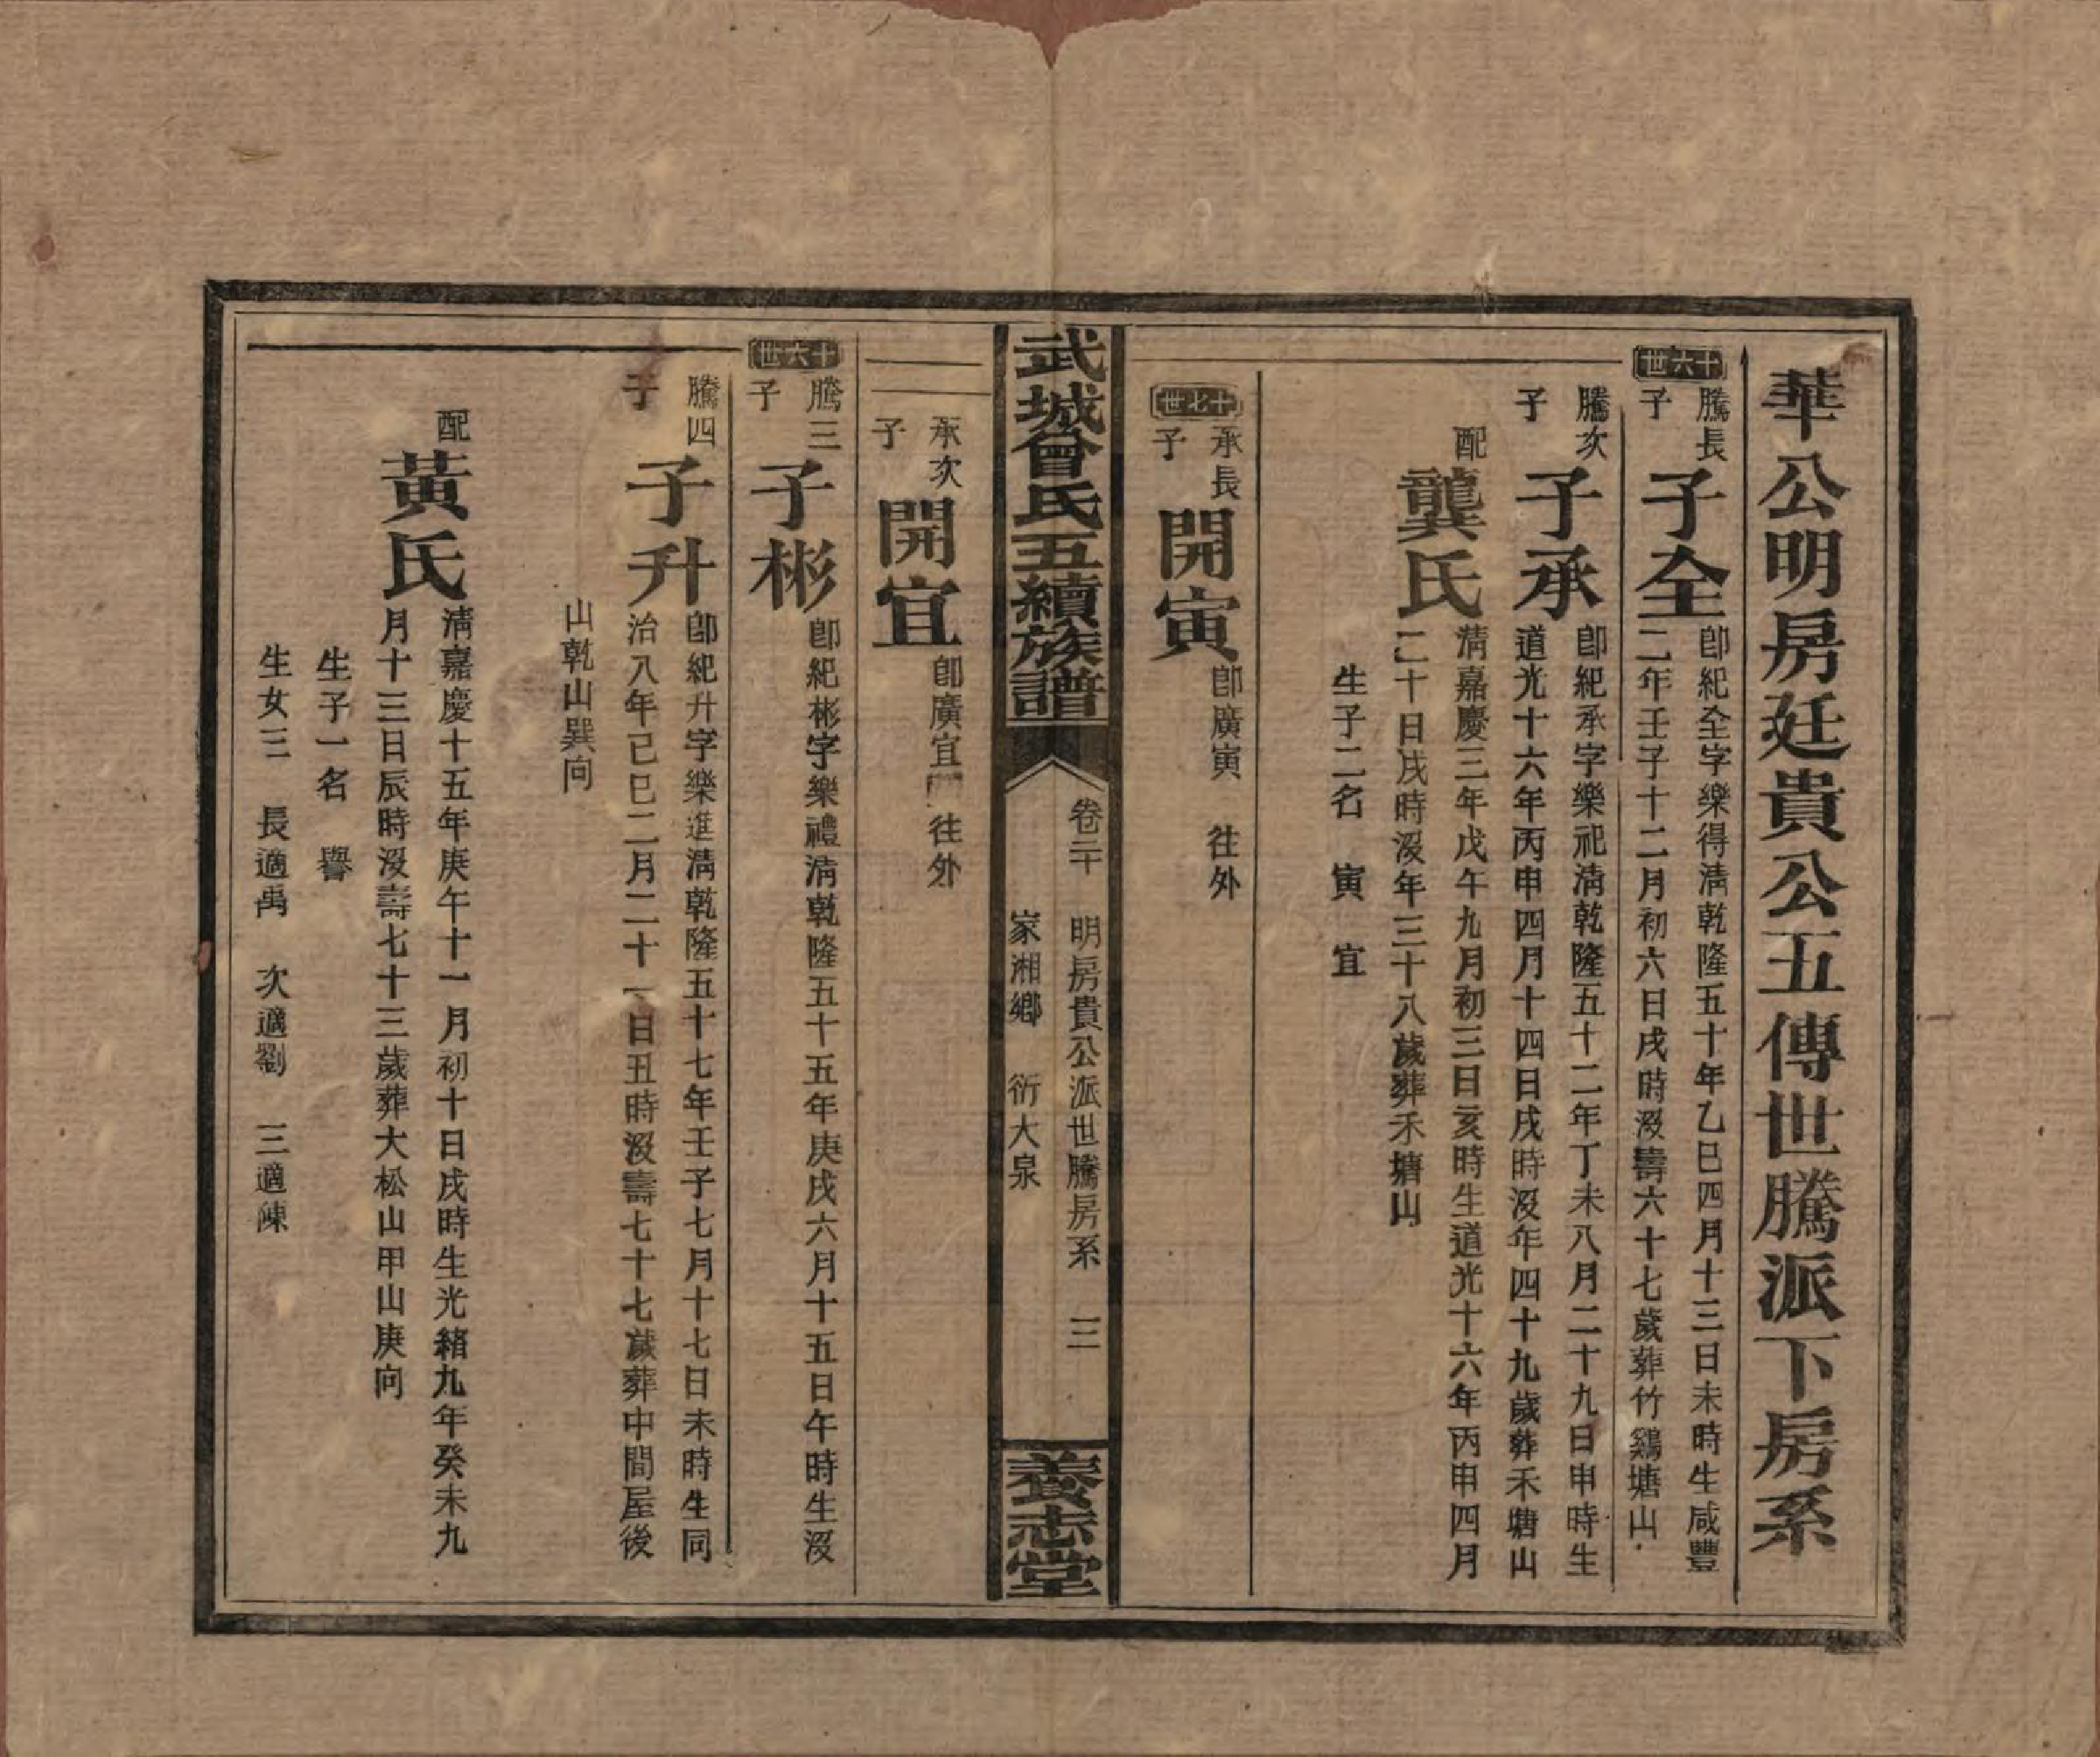 華公明房廷貴公五傳世騰派下房系
十六世
騰長
子
子全
卽紀全字樂得淸乾隆五十年乙巳四月十三日未時生咸豐
二年壬子十二月初六日戌時歿壽六十七歲葬竹鷄塘山
騰次
子
子承
卽紀承字樂祀淸乾隆五十二年丁未八月二十九日申時生
道光十六年丙申四月十四日戌時歿年四十九歲葬禾塘山
配
龔氏
淸嘉慶三年戊午九月初三日亥時生道光十六年丙申四月
二十日戌時歿年三十八歲葬禾塘山
生子二名 寅 宜
十七世
承長
子
開寅
卽廣寅 往外
武城曾氏五續族譜
卷二十 明房貴公派世騰房系 三
家湘鄉 衍大泉
養志堂
承次
子
開宜
卽廣宜 往外
十六世
騰三
子
子彬
卽紀彬字樂禮淸乾隆五十五年庚戌六月十五日午時生歿
騰四
子
子升
卽紀升字樂進淸乾隆五十七年壬子七月十七日未時生同
治八年己巳二月二十一日丑時歿壽七十七歲葬中間屋後
山乾山巽向
配
黃氏
淸嘉慶十五年庚午十一月初十日戌時生光緖九年癸未九
月十三日辰時歿壽七十三歲葬大松山甲山庚向
生子一名 譽
生女三 長適禹 次適劉 三適陳